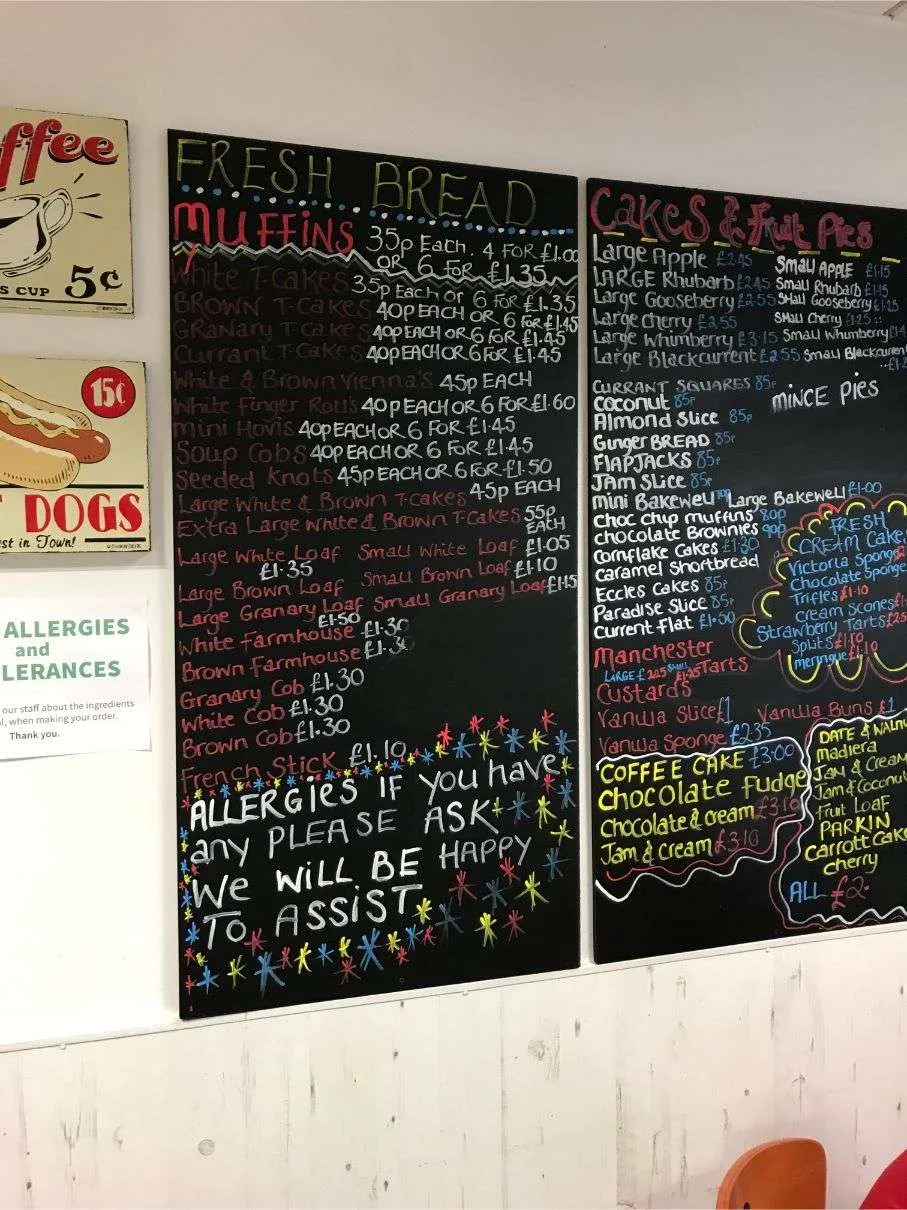 ffee
S CUP 5¢
15¢
DOGS
st in Town!
ALLERGIES
and
LERANCES
our staff about the ingredients
l, when making your order.
Thank you.
FRESH BREAD
MUFFINS 35p Each. 4 FOR £1.00
OR 6 FOR £1.35
White T-Cakes 35p Each or 6 FOR £1.35
BROWN T-Cakes 40p EACH OR 6 FOR £1.45
GRaNary T-Cakes 40p EACH OR 6 FOR £1.45
Currant T-Cakes 40p EACH OR 6 FOR £1.45
White & Brown Vienna's 45p EACH
White Finger Rolls 40p EACH OR 6 FOR £1.60
mini Hovis 40p EACH OR 6 FOR £1.45
Soup Cobs 40p EACH OR 6 FOR £1.45
Seeded Knots 45p EACH OR 6 FOR £1.50
Large White & Brown T-cakes 45p EACH
Extra Large White & Brown T-Cakes 55p EACH
Large White Loaf £1.35 Small White Loaf £1.05
Large Brown Loaf Small Brown Loaf £1.10
Large Granary Loaf £1.50 Small Granary Loaf £1.15
White Farmhouse £1.30
Brown Farmhouse
Granary Cob £1.30
White Cob £1.30
Brown Cob £1.30
French Stick £1.10
ALLERGiES IF You have
any PLEASE ASK
We WiLL BE HAPPY
To ASSiST
Cakes & Fruit Pies
Large Apple £2.45 Small APPLE £1.15
LARGE Rhubarb £2.45 Small Rhubarb £1.15
Large Gooseberry £2.55 Small Gooseberry £1.25
Large Cherry £2.55 Small Cherry
Large Whumberry £3.15 Small Whumberry
Large Blackcurrent £2.55 Small Blackcurrent
CURRANT SQUARES 85p
Coconut 85p
mINCE PiEs
Almond Slice 85p
Ginger BREAD 85p
FlapJACKS 85p
JAM SLice 85p
mini Bakewell Large Bakewell £1.00
Choc chip muffins 80p
chocolate Brownies 99p
Cornflake Cakes £1.30
Caramel Shortbread
Eccles Cakes 85p
Paradise Slice 85p
Current Flat £1.50
FRESH
CREAM Cake
Victoria Sponge
Chocolate Sponge
Trifles £1.10
Cream Scones
Strawberry Tarts
Splits £1.10
meringue £1.10
Manchester
LARGE £2.25 Small £1.25 Tarts
Custards
Vanilla Slice £1 Vanilla Buns £1
Vanilla Sponge £2.35
COFFEE CAKE £3.00
Chocolate Fudge
Chocolate & cream £3.10
Jam & cream £3.10
DATE & WALNU
madiera
Jam & Cream
Jam & Coconut
Fruit LOAF
PARKIN
Carrott Cake
cherry
ALL £2.